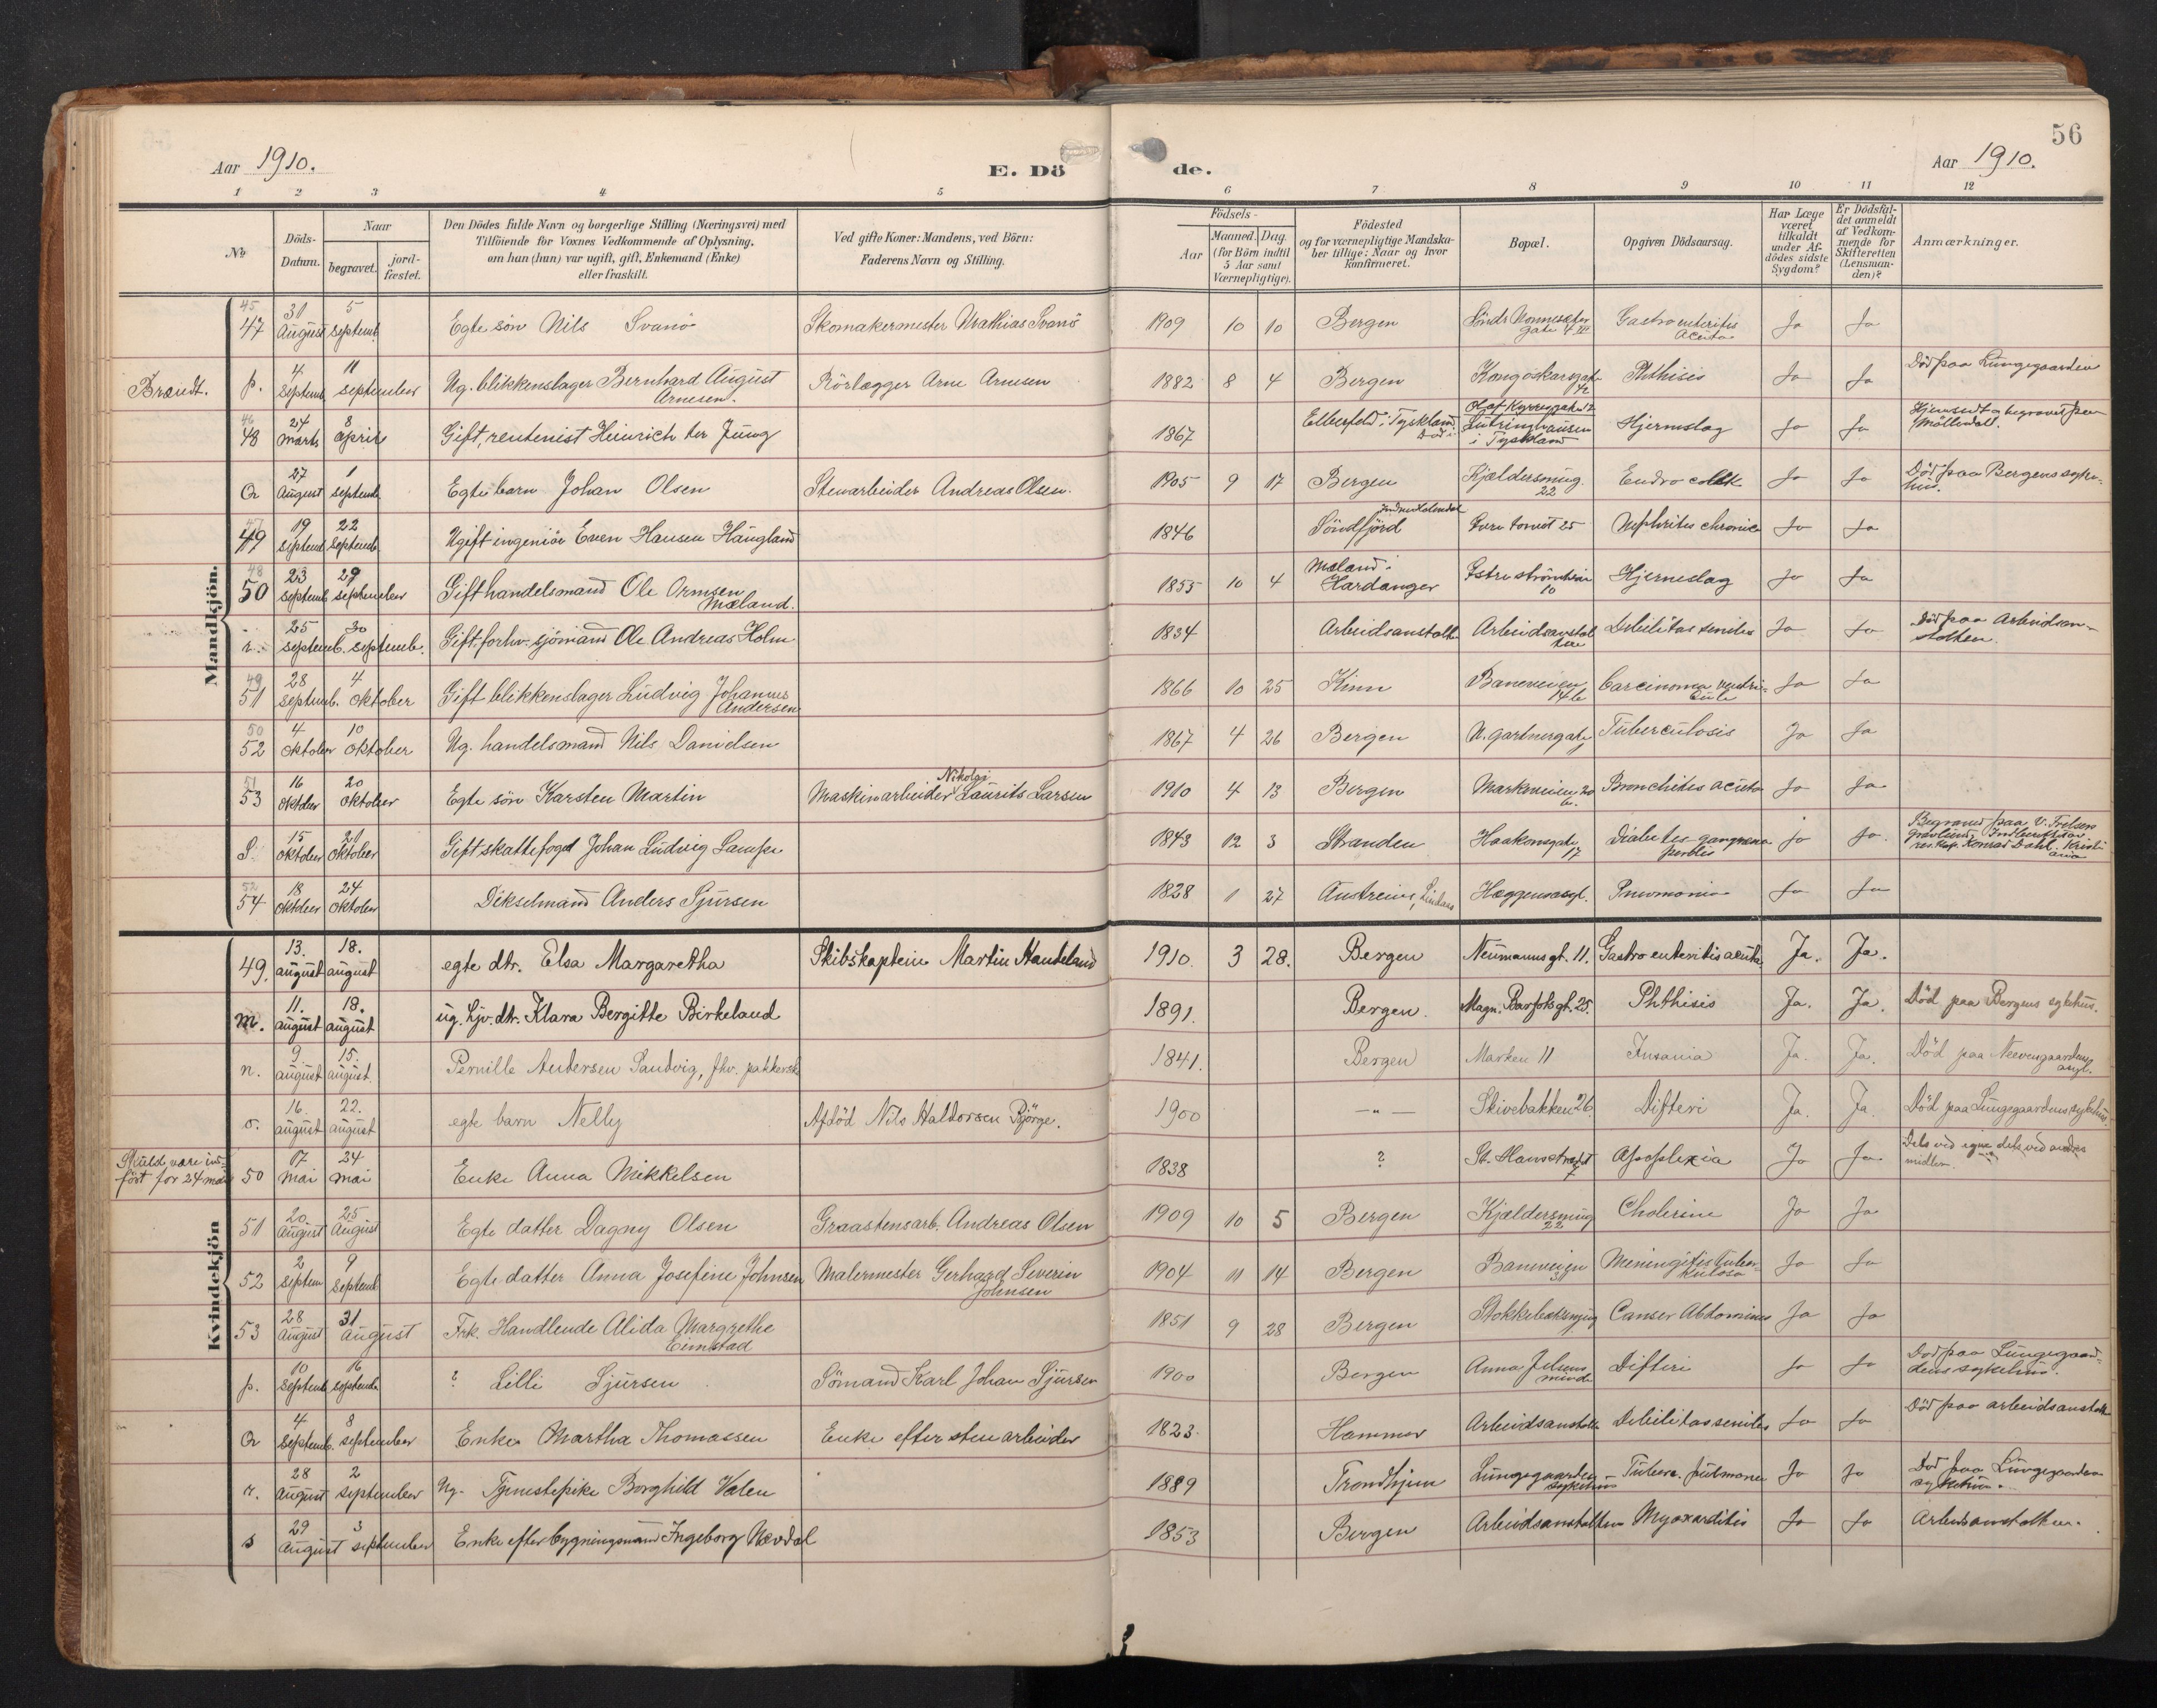 56
Aar 1910. E. Dö de. Aar 1910.
1 2 3 4 5 6 7 8 9 10 11 12
No
Döds-Datum.
Naar
begravet.
jord-fæstet.
Den Dödes fulde Navn og borgerlige Stilling (Næringsvei) med
Tilföiende for Voxnes Vedkommende af Oplysning,
om han (hun) var ugift, gift, Enkemand (Enke)
eller fraskilt.
Ved gifte Koner: Mandens, ved Börn:
Faderens Navn og Stilling.
Födsels-
Aar
Maaned. Dag.
(for Börn indtil
5 Aar samt
Værnepligtige).
Födested
og for værnepligtige Mandska-
ber tillige: Naar og hvor
konfirmeret.
Bopæl.
Opgiven Dödsaarsag.
Har Læge
været
tilkaldt
under Af-
dödes sidste
Sygdom?
Er Dödsfal-
det anmeldt
af Vedkom-
mende for
Skifteretten
(Lensman-
den)?
Anmærkninger.
Mandkjön.
45
47 31 August 5 septemb. Egte sön Nils Svanö Skomakermester Mathias Svanö 1909 10 10 Bergen Gastroenterites Acuta Ja Ja
Brandt. p. 4. Septemb. 11 september Ug. blikkenslager Bernhard August Arnesen. Rörlægger Arne Arnesen 1882 8 4 Bergen Kongoskarsgate Phthisis Ja Ja Död paa Lungegaarden
46
48 24 Marts 8 April Gift, rentenist Heinrich ter Jung 1867 Elberfeld i Tyskland. Olaf Kyrresgate 12 i Tyskland Hjerneslag Ja Ja Hjemsendt og begravet paa Möllendal.
Q 27 August 1 septemb. Egte barn Johan Olsen Stenarbeider Andreas Olsen. 1905 9 17 Bergen Kjældersmug. 22 Ja Ja Död paa Bergens syke-hus.
47
49 19 Septemb 22 Septemb. Ugift ingeniör Even Hansen Haugland 1846 Söndfjord 25 Nephritis chronica Ja Ja
48
50 23 Septemb 29 september Gift handelsmand Ole Ormsen Mæland. 1855 10 4 Mæland i Hardanger 10 Hjerneslag Ja Ja
r. 25 septemb. 30 septemb. Gift. forhv. sjömand Ole Andreas Holm 1834 Arbeidsanstalten Arbeidsanstalten Debilitas seniles Ja Ja Död paa Arbeidsan-stalten.
49
51 28 septemb. 4 Oktober Gift blikkenslager Ludvig Johannes Andersen 1866 10 25 Kinn Baneveien 14b Carcinoma ventri-culi Ja Ja
50
52 4 Oktober 10 Oktober Ug. handelsmand Nils Danielsen 1867 4 26 Bergen N. gartnergate 1 Tuberculosis Ja Ja
51
53 16 Oktober 20 Oktober Egte sön Karsten Martin Maskinarbeider Nikolai Laurits Larsen 1910 4 13 Bergen Markeveien 20 Bronchitis acuta Ja Ja
S. 15 Oktober 21 Oktober Gift skattefoged Johan Ludvig Lampe 1843 12 3 Stranden Haakonsgate 17 Diabetes gangræna Ja Ja. Begravet paa V. Frelsers gravlund. Indberettet av res. kap. Konrad Dahl, Kristi-ania
52
54 18 Oktober 24 Oktober Dikselmand Anders Sjursen 1828 1 27 Austreim, Lindaas Hæggensasyl. Pneumonia Ja Ja
Kvindekjön
49. 13. august 18. august egte dtr. Elsa Margaretha Skibskaptein Martin Haukeland 1910. 3 28. Bergen Neumannsgt. 11. Gastro enteritis acuta. Ja. Ja.
m. 11. august 18. august ug. hjv. dtr. Klara Bergitte Birkeland 1891. Bergen. Magn. Barfotsgt. 25. Phthisis Ja. Ja. Död paa Bergens sykehus.
n. 9. august 15. august. Pernille Andersen Sandvig, fhv. pakkersk. 1841. Bergen Marken 11 Insania Ja. Ja. Död paa Neevengaardens asyl.
o. 16. august 22. august egte barn Nelly Afdöd Nils Haldorsen Björge. 1900 — " — Skivebakken 26. Difteri Ja. Ja. Död paa Lungegaardens sykehus.
Skuld være ind-fört for 24 mai 50 17 Mai 24 Mai Enke Anna Mikkelsen 1838 ? St. Hansstrædet 7 Apoplexia Ja Ja Dels ved egne dels ved andres midler.
51 20 August 25 August Egte datter Dagny Olsen Graastensarb. Andreas Olsen 1909 10 5 Bergen Kjældersmug 22 Cholerine Ja Ja
52 2 Septem 9 Septemb Egte datter Anna Josefine Johnsen Malermester Gerhard Severin Johnsen 1904 11 14 Bergen Baneveien 31 Meningitis Tuber-kulosa Ja Ja
53 28 August 31 August Frk. Handlende Alida Margrethe Eimstad 1851 9 28 Bergen Stokkebaksmug Canser Abdominus Ja Ja
p. 10 Septemb 16 septemb. ? Lilli Sjursen Sömand Karl Johan Sjursen 1900 Bergen Anna Jebsens minde Difteri Ja Ja Död paa Lungegaar-dens sykehus.
Q 4 Septemb. 8 september Enke Martha Thomassen Enke efter stenarbeider 1823. Hammer Arbeidsanstalten Debilitas seniles Ja Ja Död paa arbeidsanstalten
r. 28 August 2 september Ug. Tjenestepike Borghild Valen 1889 Trondhjem Lungegaarden sykehus Tuberc. pulmones Ja Ja Död paa Lungegaarden sykehus.
s 29 August 3 september Enke efter bygningsmand Ingeborg Nævdal 1853 Bergen Arbeidsanstalten Myocarditis Ja Ja Arbeidsanstalten.